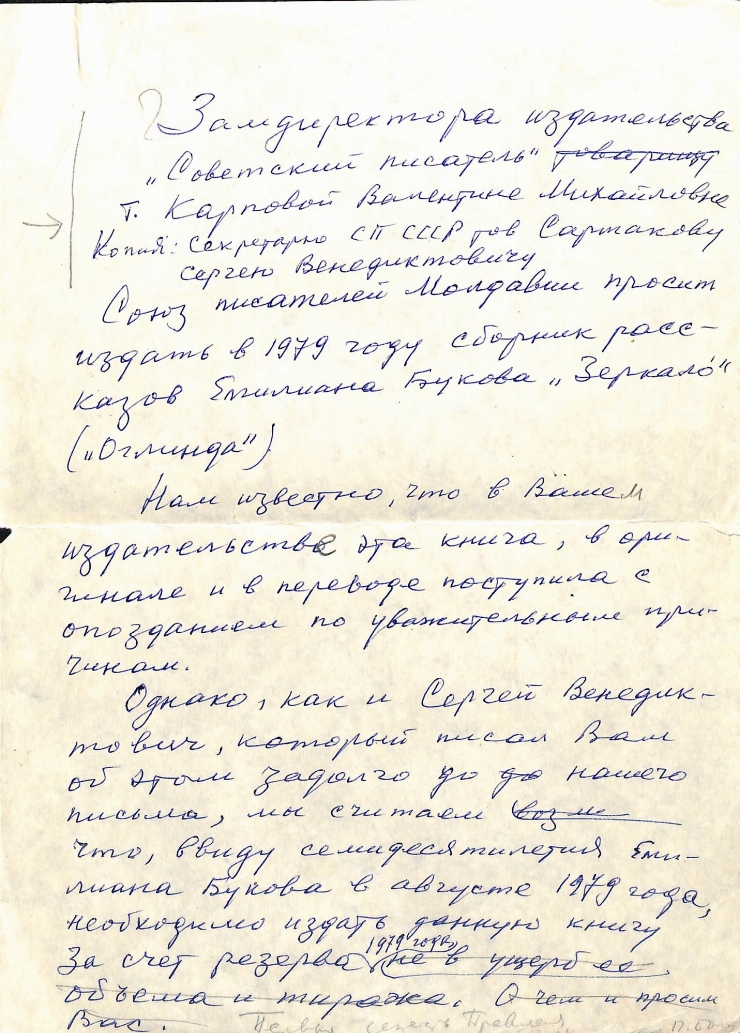 Замдиректора издательства
„Советский писатель" товарищу
т. Карповой Валентине Михайловне
Копия: Секретарю СП СССР тов Сартакову
Сергею Венедиктовичу
Союз писателей Молдавии просит
издать в 1979 году сборник расс-
казов Емилиана Букова „Зеркало"
(„Оглинда")
Нам известно, что в Вашем
издательстве эта книга, в ори-
гинале и в переводе поступила с
опозданием по уважительным при-
чинам.
Однако, как и Сергей Венедик-
тович, который писал Вам
об этом задолго до до нашего
письма, мы считаем возм
что, ввиду семидесятилетия Еми-
лиана Букова в августе 1979 года,
необходимо издать данную книгу
1979 года,
За счет резерва не в ущерб ее
объема и тиража. О чем и просим
Вас.